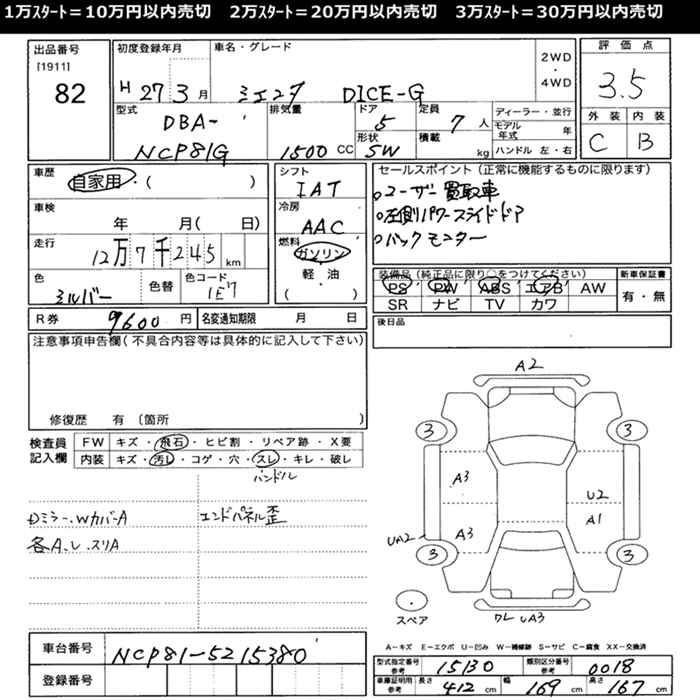 1万スタート＝10万円以内売切　2万スタート＝20万円以内売切　3万スタート＝30万円以内売切
出品番号
[1911]
82
初度登録年月
H 27年 3月
車名・グレード
シエンタ DICE-G
2WD
・
4WD
評価点
3.5
外装 内装
C B
型式
DBA-
NCP81G
排気量
1500 CC
ドア
5
形状
SW
定員
7 人
積載
kg
ディーラー・並行
モデル年式 年
ハンドル 左・右
車歴
自家用・( )
車検
年 月( 日)
走行
12万7千245 km
色
シルバー
色替
色コード
1E7
シフト
IAT
冷房
AAC
燃料
ガソリン
・
軽・油
( )
セールスポイント(正常に機能するものに限ります)
○ユーザー買取車
○左側パワースライドドア
○バックモニター
装備品(純正品に限り○をつけてください)
PS PW ABS エアB AW
SR ナビ TV カワ
新車保証書
有・無
R券 9600 円
名変通知期限 月 日
後日品
注意事項申告欄(不具合内容等は具体的に記入して下さい)
修復歴 有 〔箇所 〕
検査員記入欄
FW キズ・飛石・ヒビ割・リペア跡・X要
内装 キズ・汚レ・コゲ・穴・スレ・キレ・破レ
ハンドル
Dミラー、WカバーA
エンドパネル歪
各A、レ、スリA
A2
3
3
A3
U2
A1
A3
UA2
3
3
スペア
ワレ UA3
A－キズ E－エクボ U－凹み W－補修跡 S－サビ C－腐食 XX－交換済
車台番号 NCP81-5215380
登録番号
型式指定番号 参考 15130
類別区分番号 参考 0018
車庫証明用 参考 長さ 412 cm 幅 169 cm 高さ 167 cm